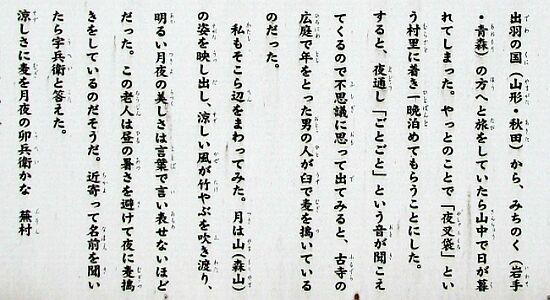 出羽の国（山形・秋田）から、みちのく（岩手
・青森）の方へと旅をしていたら山中で日が暮
れてしまった。やっとのことで「夜叉袋」とい
う村里に着き一晩泊めてもらうことにした。
すると、夜通し「ごとごと」という音が聞こえ
てくるので不思議に思って出てみると、古寺の
広庭で年をとった男の人が臼で麦を搗いている
のだった。
私もそこら辺をまわってみた。月は山（森山）
の姿を映し出し、涼しい風が竹やぶを吹き渡り、
明るい月夜の美しさは言葉で言い表せないほど
だった。この老人は昼の暑さを避けて夜に麦搗
きをしているのだそうだ。近寄って名前を聞い
たら宇兵衛と答えた。
涼しさに麦を月夜の卯兵衛かな　蕪村